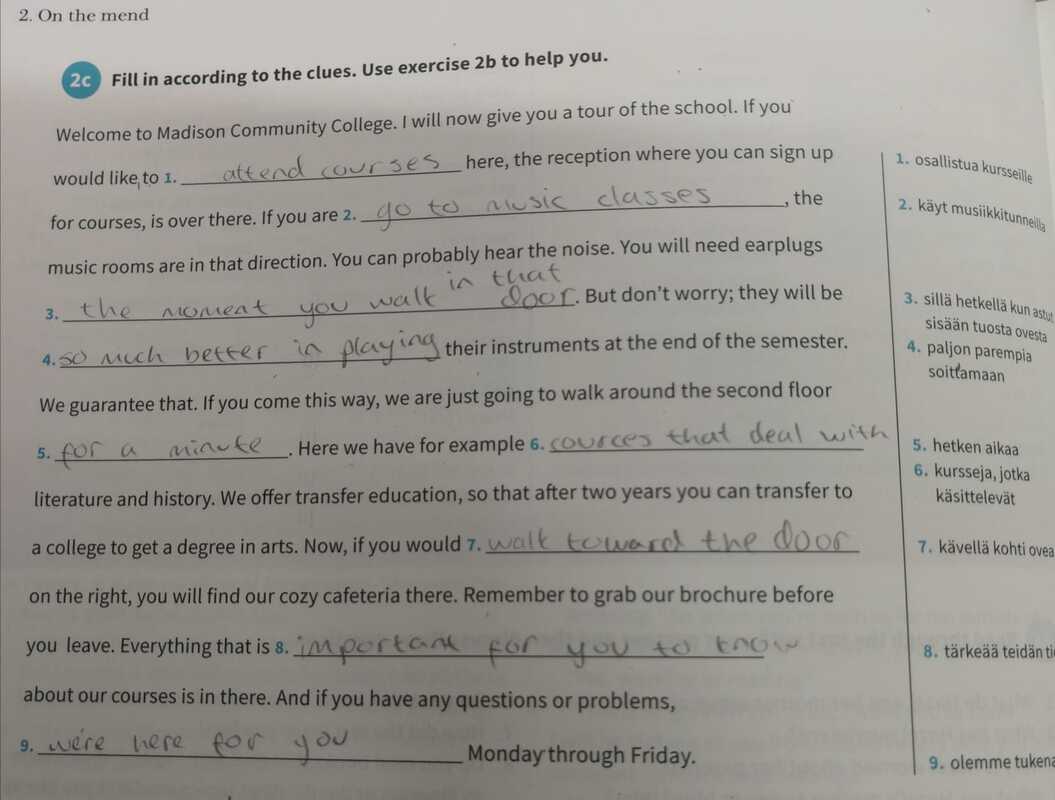 2. On the mend
2c Fill in according to the clues. Use exercise 2b to help you.
Welcome to Madison Community College. I will now give you a tour of the school. If you
would like to 1. attend courses here, the reception where you can sign up
1. osallistua kursseille
for courses, is over there. If you are 2. go to music classes, the
2. käyt musiikkitunneilla
music rooms are in that direction. You can probably hear the noise. You will need earplugs
3. the moment you walk in that door. But don't worry; they will be
3. sillä hetkellä kun astut
sisään tuosta ovesta
4. so much better in playing their instruments at the end of the semester.
4. paljon parempia
soittamaan
We guarantee that. If you come this way, we are just going to walk around the second floor
5. for a minute. Here we have for example 6. cources that deal with
5. hetken aikaa
6. kursseja, jotka
käsittelevät
literature and history. We offer transfer education, so that after two years you can transfer to
a college to get a degree in arts. Now, if you would 7. walk toward the door
7. kävellä kohti ovea
on the right, you will find our cozy cafeteria there. Remember to grab our brochure before
you leave. Everything that is 8. important for you to know
8. tärkeää teidän
about our courses is in there. And if you have any questions or problems,
9. we're here for you Monday through Friday.
9. olemme tukena